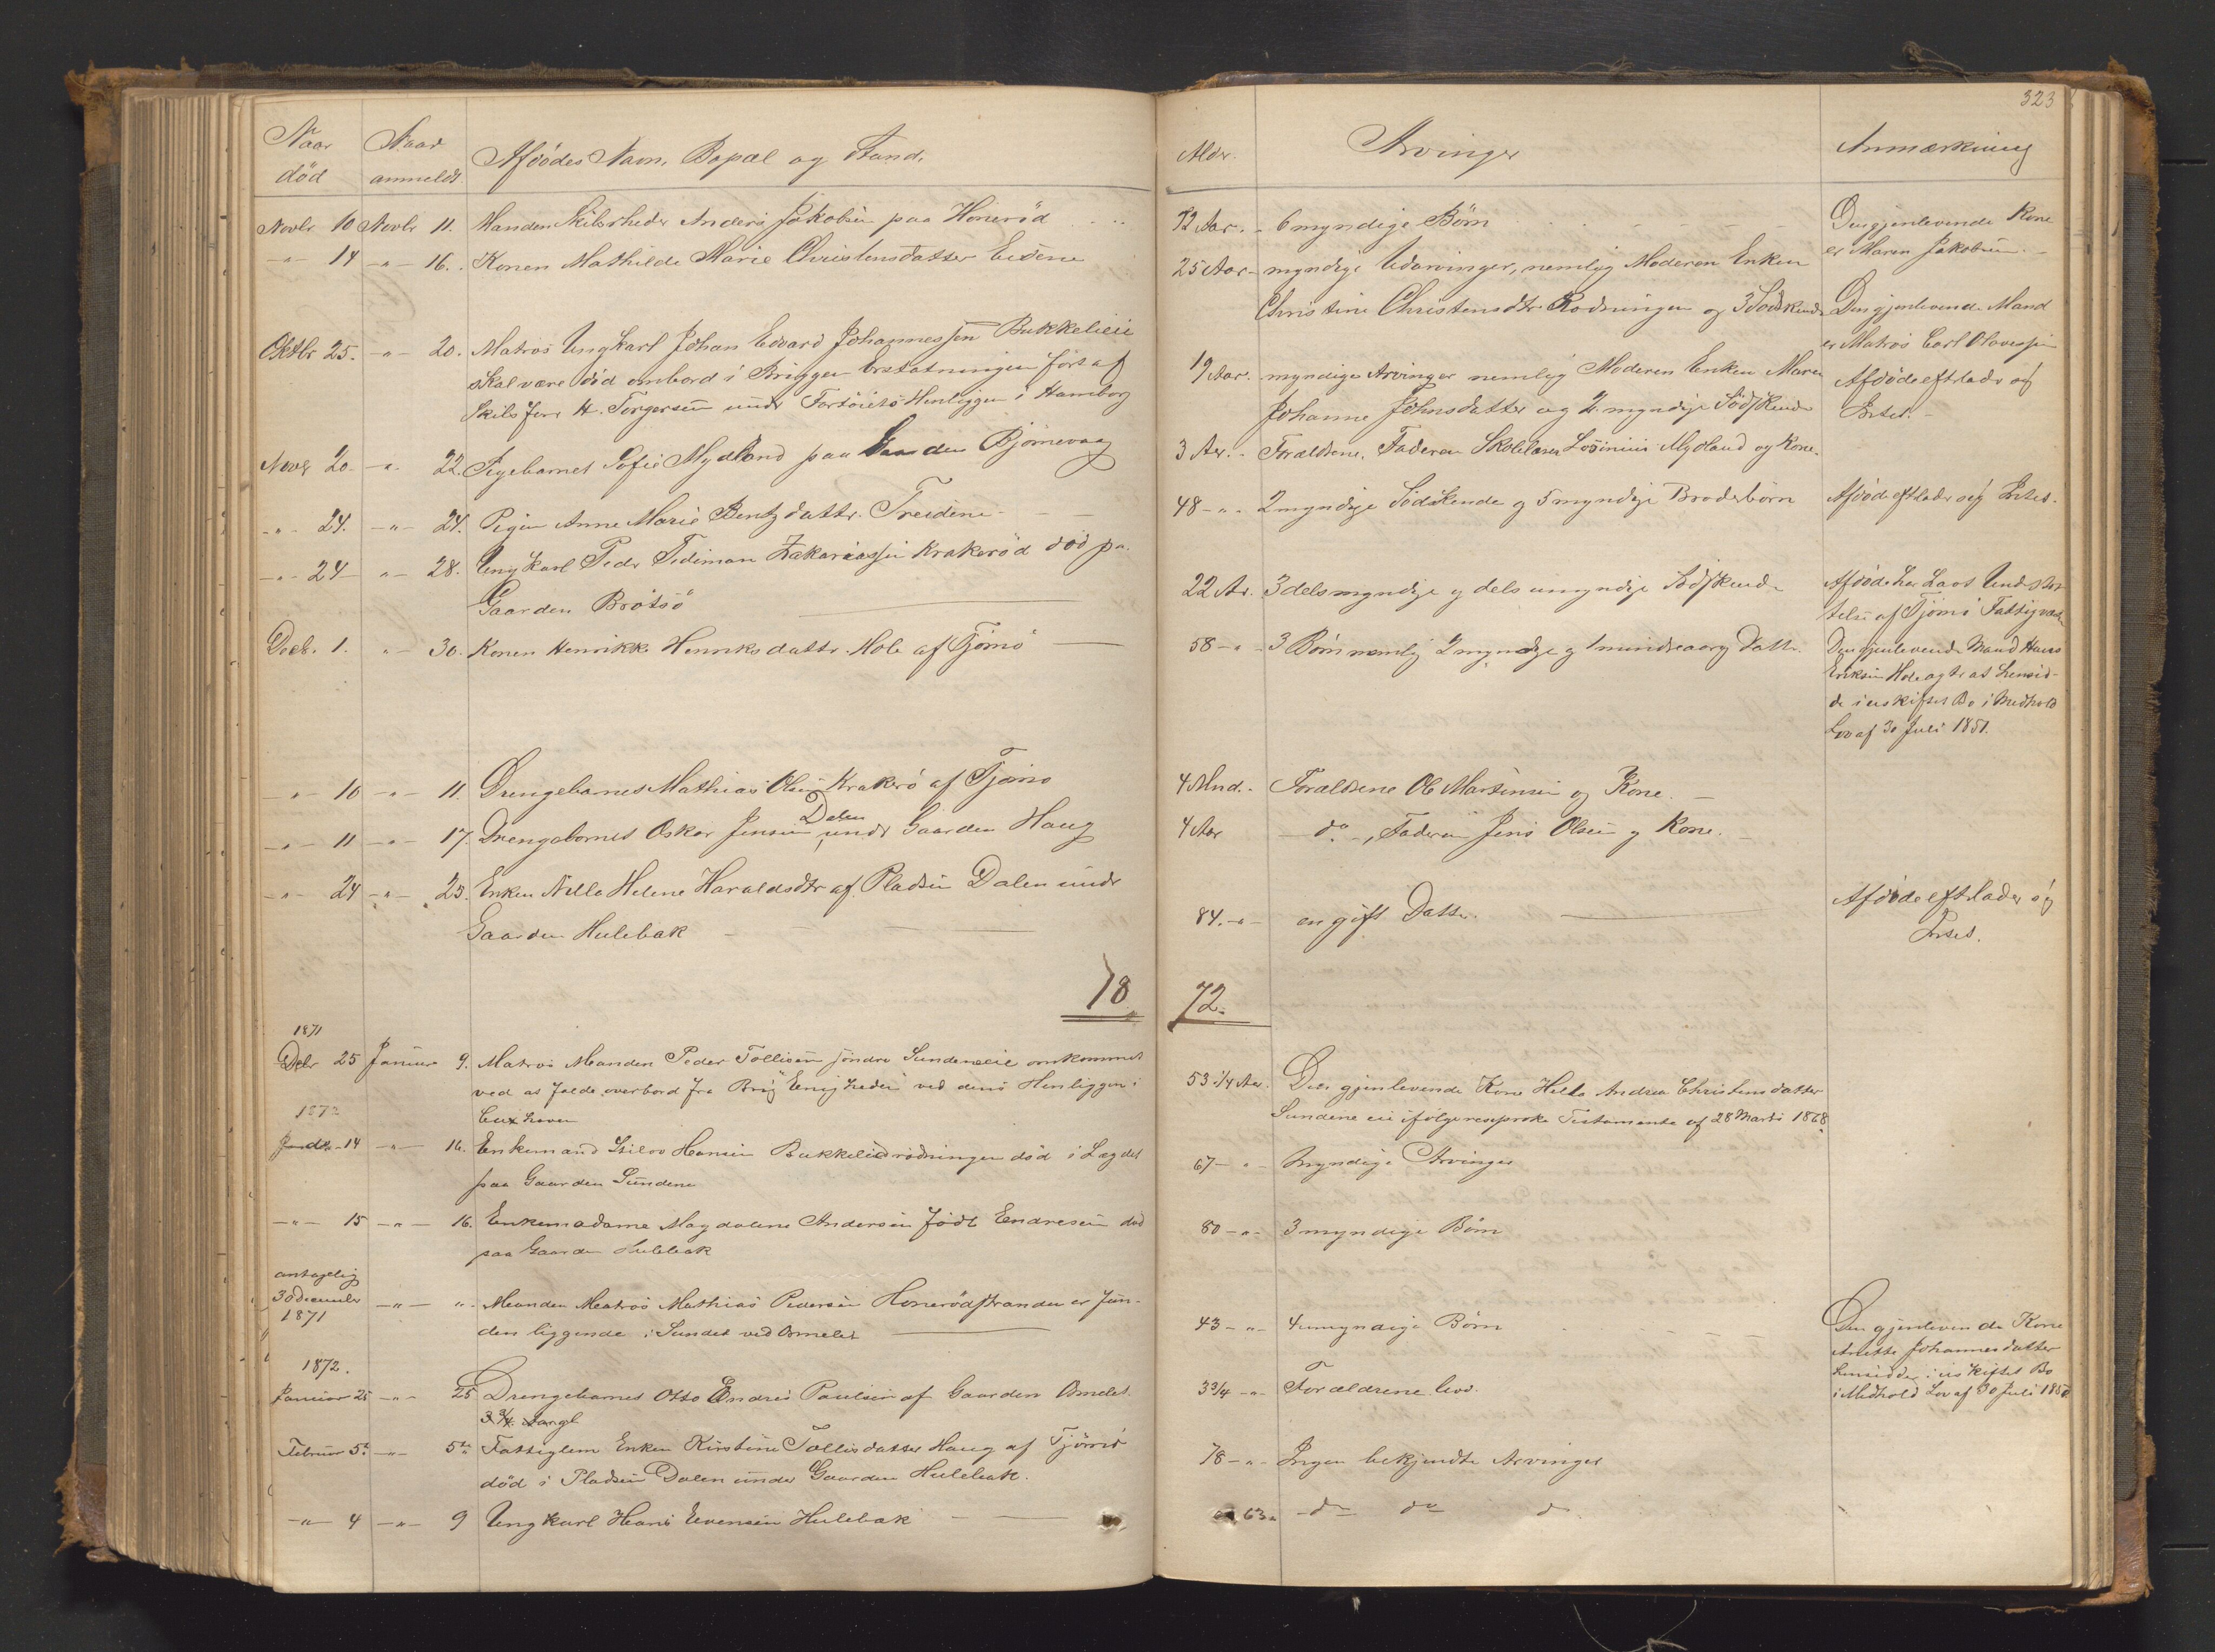 Naar død
Naar anmeldt
Afdødes Navn, Bopæl og Stand.
Novbr 10 Novbr 11. Manden Skibsrheder Anders Jakobsen paa Honerød
-"- 14 -"- 16. Konen Mathilde Marie Christensdatter Eidene
Oktbr 25. -"- 20. Matros Ungkarl Johan Edvard Johannessen Bukkelieie
skal være død ombord i Briggen Erstatningen ført af
Skibsfører H. Torgersen under Fartøiets Henliggen i Hamborg
Novbr 20 -"- 22. Pigebarnet Sofie Mydland paa Gaarden Bjørnevaag
-"- 24. -"- 24. Pigen Anne Marie Bentzdattr. Treidene
-"- 24 -"- 28. Ungkarl Peder Tidiman Zakariassen Krakerød død pa.
Gaarden Brøtsø
Decb. 1. -"- 30. Konen Henrikke Henriksdattr. Hole af Tjømø
-"- 10 -"- 11. Drengebarnet Mathias Olsen Krakerø af Tjømø
Dalen
-"- 11 -"- 17. Drengebarnet Oskar Jensen under Gaarden Haug
-"- 24 -"- 25. Enken Nilla Helene Haraldsdtr af Pladsen Dalen under
Gaarden Hulebak
18
1871
Debr 25 Januar 9. Matros Manden Peder Tollisen søndre Sundeneeie omkommet
ved at falde overbord fra Brig "Enigheden" ved dens Henliggen i
Cuxhaven
1872
-14 -"- 16. Enkemand Hansen Bukkelierødningen død i Lægdet
paa Gaarden Sundene
-"- 15 -"- 16. Enkemadame Magdalene Andersen født Endresen død
paa Gaarden Hulebak
antagelig
30 december
1871
-"- "- Manden Matros Mathias Pedersen Honerødstranden er fun-
den liggende i Sundet ved Ormelet
1872.
Januar 25 -"- 25 Drengebarnet Otto Endres Paulsen af Gaarden Ormelet
3 3/4 Aargl
Februar 5te -"- 5te Fattiglem Enken Kirstine Tollisdatter Haug af Tjømø
død i Pladsen Dalen under Gaarden Hulebak.
-"- 4 -"- 9 Ungkarl Hans Evensen Hulebak
323
Alder.
Arvinger
Anmærkning
72 Aar. - 6 myndige Børn
Den gjenlevende Kone
er Maren Jakobsen. -
25 Aar - myndige Udarvinger, nemlig Moderen Enken
Christine Christensdtr Rødningen og 3 Sødskende
Den gjenlevende Mand
er Matros Carl Olavessen
19 Aar. myndige Arvinger nemlig Moderen Enken Maren
Johanne Johnsdatter og 2 myndige Sødskende
Afdøde eftlader sig
Intet. -
3 Aar. - Forældrene, Faderen Skolelærer Mydland og Kone.
48 -"- 2 myndige Sødskende og 5 myndige Broderbørn
Afdøde eftlader sig Intet.
22 Ar. 3 dels myndige og dels umyndige Sødskende
Afdøde har havt Understøt
telse af Tjømø Fattigvæsen
58 -"- 3 Børn nemlig 2 myndige og 1 mindreaarig Datter.
Den gjenlevende Mand Hans
Eriksen Hole agter at hensid-
de i uskiftet Bo i Medhold
Lov af 30 Juli 1851.
4 Mnd. - Forældrene Ole Martinsen og Kone. -
4 Aar - do -, Faderen Jens Olsen og Kone. -
84. -"- en gift Datter.
Afdøde eftlader sig
Intet.
72.
53 1/4 Aar. Den gjenlevende Kone Helle Andrea Christensdatter
Sundene eie ifølge resiproke Testamente af 28 Marts 1868
67 -"- Myndige Arvinger
80 -"- 3 myndige Børn
43 -"- 4 umyndige Børn
Den gjenlevende Kone
Anette Johannesdatter
hensidder i uskiftet Bo
i Medhold Lov af 30 Juli 1851
3 3/4 -"- Forældrene leve.
78 -"- Ingen bekjendte Arvinger
63 " -do- do do